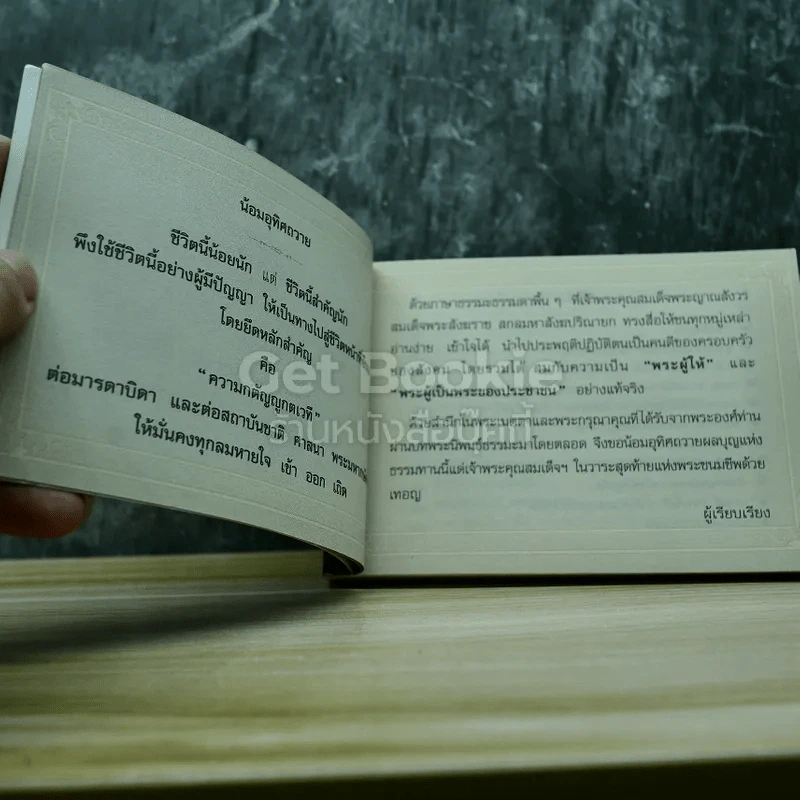 น้อมอุทิศถวาย
ชีวิตนี้น้อยนัก แต่ ชีวิตนี้สำคัญนัก
พึงใช้ชีวิตนี้อย่างผู้มีปัญญา ให้เป็นทางไปสู่ชีวิตหน้า
โดยยึดหลักสำคัญ
คือ
“ความกตัญญูกตเวที”
ต่อมารดาบิดา และต่อสถาบันชาติ ศาสนา พระมหา
ให้มั่นคงทุกลมหายใจ เข้า ออก เถิด
ด้วยภาษาธรรมะธรรมดาพื้น ๆ ที่เจ้าพระคุณสมเด็จพระญาณสังวร
สมเด็จพระสังฆราช สกลมหาสังฆปริณายก ทรงสื่อให้ชนทุกหมู่เหล่า
อ่านง่าย เข้าใจได้ นำไปประพฤติปฏิบัติตนเป็นคนดีของครอบครัว
ของสังคมโดยรวมได้ สมกับความเป็น “พระผู้ให้” และ
“พระผู้เป็นพระของประชาชน” อย่างแท้จริง
ด้วยสำนึกในพระเมตตาและพระกรุณาคุณที่ได้รับจากพระองค์ท่าน
ผ่านบทพระนิพนธ์ธรรมะมาโดยตลอด จึงขอน้อมอุทิศถวายผลบุญแห่ง
ธรรมทานนี้แด่เจ้าพระคุณสมเด็จฯ ในวาระสุดท้ายแห่งพระชนมชีพด้วย
เทอญ
ผู้เรียบเรียง
Get Bookie
ร้านหนังสือบุ๊คกี้